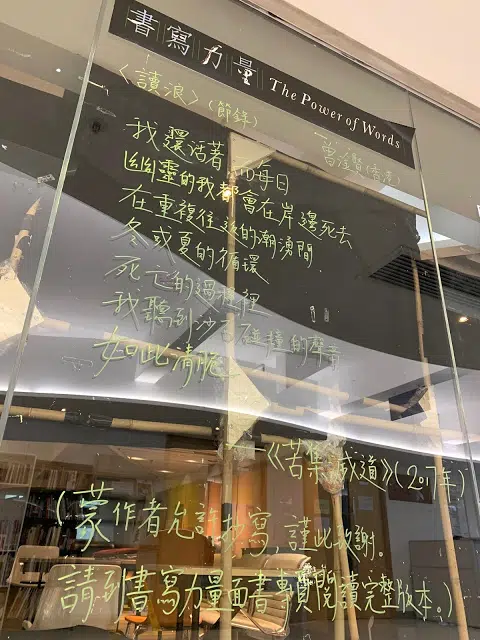 書寫力量 The Power of Words
〈讀浪〉(節錄)
—曾淦賢(香港)
我還活著 而每日
幽靈的我都會在岸邊死去
在重複往返的潮湧間
冬或夏的循環
死亡的過程裡
我聽到沙石碰撞的聲音
如此清脆
——《苦集滅道》(2017年)
(蒙作者允許抄寫,謹此致謝。
請到書寫力量面書專頁閱讀完整版本。)